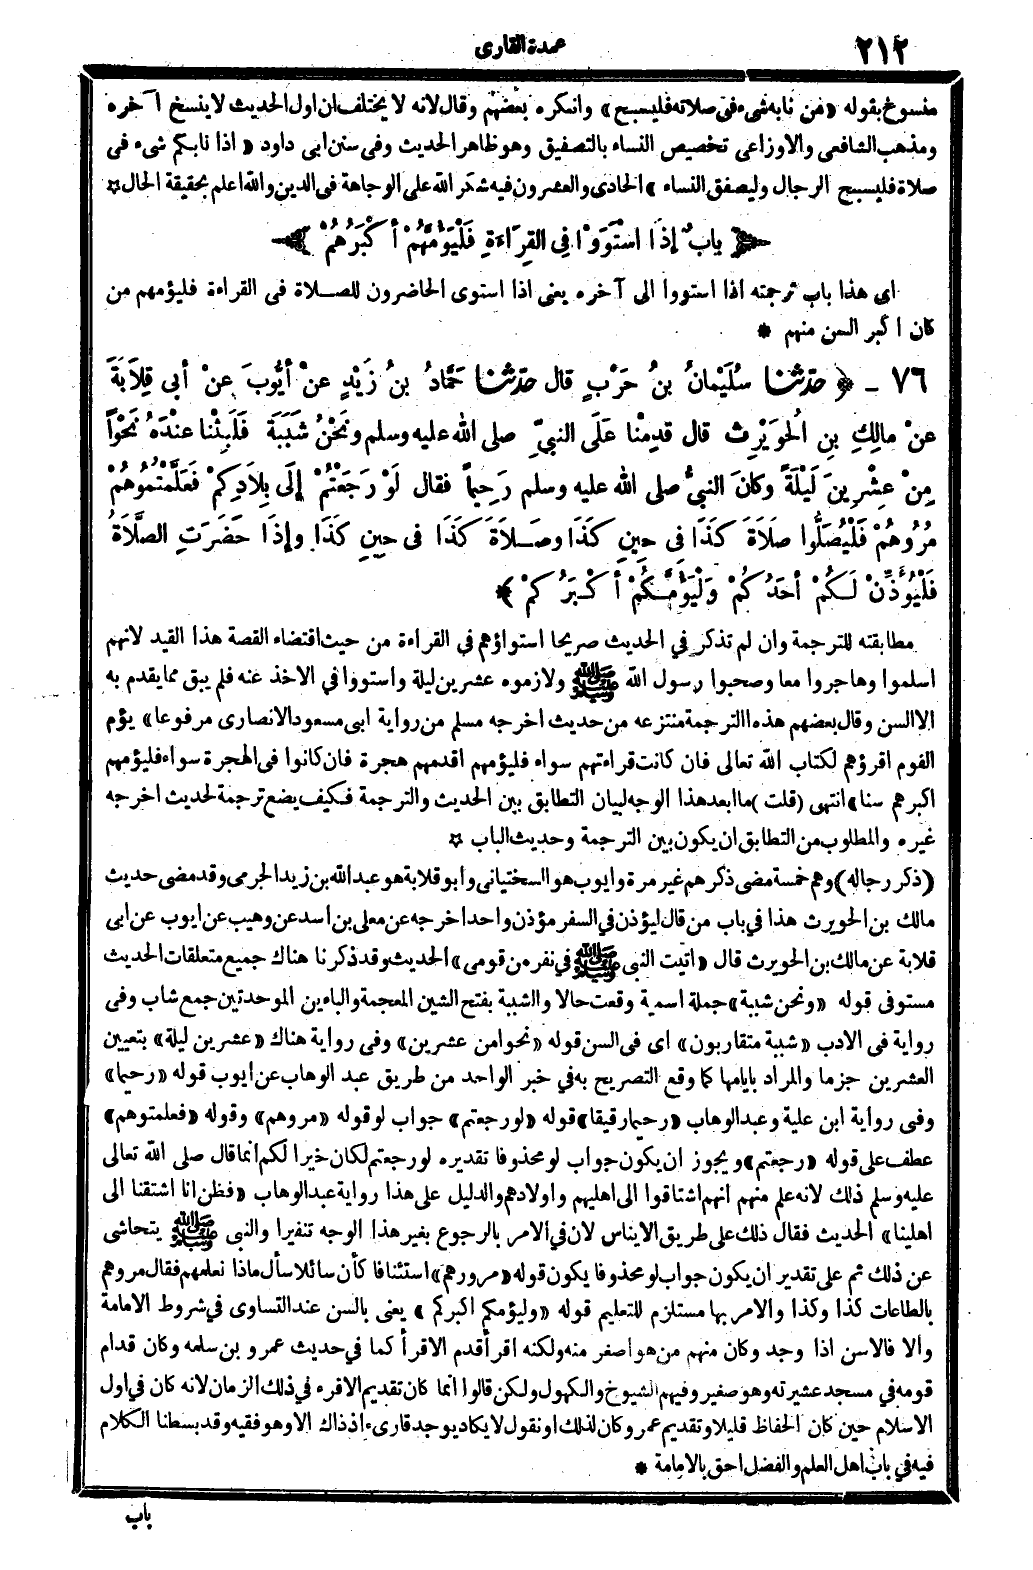 ٢١٢
عمدة القارى
منسوخ بقوله «من نابه شىء فى صلاته فليسبح» وانكره بعضهم وقال لانه لا يختلف ان اول الحديث لا ينسخ آخره
ومذهب الشافعى والاوزاعى تخصيص النساء بالتصفيق وهو ظاهر الحديث وفى سنن ابى داود «اذا نابكم شىء فى
صلاة فليسبح الرجال وليصفق النساء» الحادى والعشرون فيه شكر الله على الوجاهة فى الدين والله اعلم بحقيقة الحال ☆
﴿ بابٌ إذَا اسْتَوَوْا فِي القِرَاءَةِ فَلْيَؤُمَّهُمْ أكْبَرُهُمْ ﴾
اى هذا باب ترجمته اذا استووا الى آخره يعنى اذا استوى الحاضرون للصلاة فى القراءة فليؤمهم من
كان اكبر السن منهم *
٧٦ - ﴿ حدّثنا سُلَيْمانُ بنُ حَرْبٍ قال حدّثنا حَمَّادُ بنُ زَيْدٍ عنْ أيُّوبَ عنْ أبى قِلَابَةَ
عنْ مالِكِ بنِ الحُوَيْرِثِ قال قدِمْنا عَلَى النبىِّ صلى الله عليه وسلم ونَحْنُ شَبَبَةٌ فَلَبِثْنا عِنْدَهُ نَحْوًا
مِنْ عِشْرِينَ لَيْلَةً وكانَ النبىُّ صلى الله عليه وسلم رَحِيماً فقال لَوْ رَجَعْتُمْ إلَى بِلَادِكمْ فَعَلَّمْتُمُوهُمْ
مُرُوهُمْ فَلْيُصَلُّوا صَلَاةَ كَذَا فِى حِينِ كَذَا وصَلَاةَ كَذَا فى حِينِ كَذَا وإذَا حَضَرَتِ الصَّلَاةُ
فَلْيُؤَذِّنْ لَكُمْ أحَدُكُمْ وَلْيَؤُمَّكُمْ أكْبَرُكمْ ﴾ *
مطابقته للترجمة وان لم تذكر في الحديث صريحا استواؤهم في القراءة من حيث اقتضاء القصة هذا القيد لانهم
اسلموا وهاجروا معا وصحبوا رسول الله ﷺ ولازموه عشرين ليلة واستووا في الاخذ عنه فلم يبق مما يقدم به
الا السن وقال بعضهم هذه الترجمة منتزعه من حديث اخرجه مسلم من رواية ابى مسعود الانصارى مرفوعا» يؤم
القوم اقرؤهم لكتاب الله تعالى فان كانت قراءتهم سواء فليؤمهم اقدمهم هجرة فان كانوا فى الهجرة سواء فليؤمهم
اكبرهم سنا» انتهى (قلت) ما ابعد هذا الوجه لبيان التطابق بين الحديث والترجمة فكيف يضع ترجمة لحديث اخرجه
غيره والمطلوب من التطابق ان يكون بين الترجمة وحديث الباب ☆
(ذكر رجاله) وهم خمسة مضى ذكرهم غير مرة وايوب هو السختيانى وابو قلابة هو عبد الله بن زيد الجرمى وقد مضى حديث
مالك بن الحويرث هذا في باب من قال ليؤذن في السفر مؤذن واحد اخرجه عن معلى بن اسد عن وهيب عن ايوب عن ابى
قلابة عن مالك بن الحويرث قال «اتيت النبى ﷺ في نفر من قومى» الحديث وقد ذكرنا هناك جميع متعلقات الحديث
مستوفى قوله «ونحن شببة» جملة اسمية وقعت حالا والشببة بفتح الشين المعجمة والباءين الموحدتين جمع شاب وفى
رواية فى الادب «شببة متقاربون» اى فى السن قوله «نحوا من عشرين» وفى رواية هناك «عشرين ليلة» بتعيين
العشرين جزما والمراد بايامها كما وقع التصريح به في خبر الواحد من طريق عبد الوهاب عن ايوب قوله «رحيما»
وفى رواية ابن علية وعبد الوهاب «رحيما رقيقا» قوله «لو رجعتم» جواب لو قوله «مروهم» وقوله «فعلمتوهم»
عطف على قوله «رجعتم» ويجوز ان يكون جواب لو محذوفا تقديره لو رجعتم لكان خيرا لكم انما قال صلى الله تعالى
عليه وسلم ذلك لانه علم منهم انهم اشتاقوا الى اهليهم واولادهم والدليل على هذا رواية عبد الوهاب «فظن انا اشتقنا الى
اهلينا» الحديث فقال ذلك على طريق الايناس لان في الامر بالرجوع بغير هذا الوجه تنفيرا والنبى ﷺ يتحاشى
عن ذلك ثم على تقدير ان يكون جواب لو محذوفا يكون قوله «مرورهم» استئنافا كأن سائلا سأل ماذا نعلمهم فقال مروهم
بالطاعات كذا وكذا والامر بها مستلزم للتعليم قوله «وليؤمكم اكبركم» يعنى بالسن عند التساوى في شروط الامامة
والا فالاسن اذا وجد وكان منهم من هو اصغر منه ولكنه اقرأ قدم الاقرأ كما في حديث عمرو بن سلمه وكان قد ام
قومه في مسجد عشيرته وهو صغير وفيهم الشيوخ والكهول ولكن قالوا انما كان تقديم الاقره في ذلك الزمان لانه كان في اول
الاسلام حين كان الحفاظ قليلا وتقديم عمرو كان لذلك او نقول لا يكاد يوجد قارىء اذ ذاك الا وهو فقيه وقد بسطنا الكلام
فيه في باب اهل العلم والفضل احق بالامامة *
باب